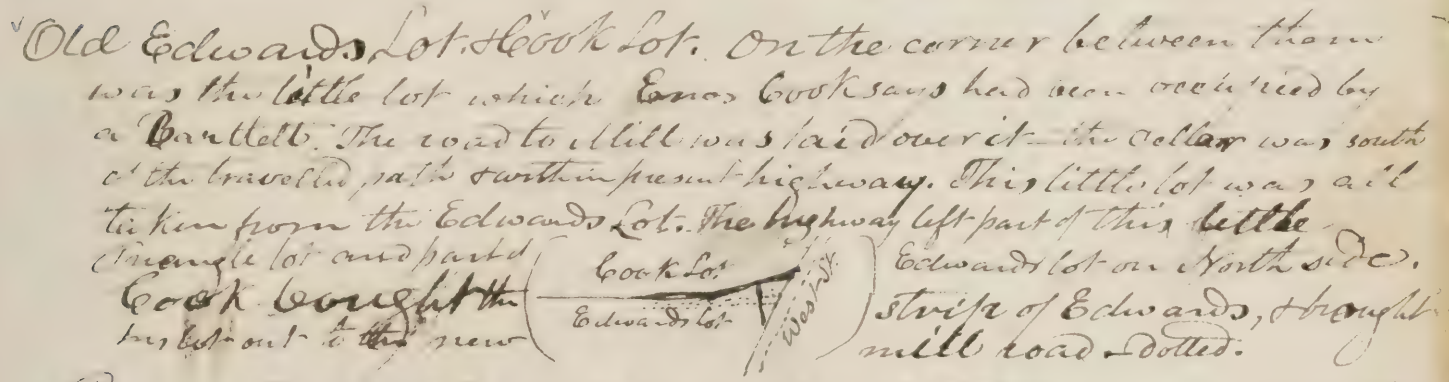 Old Edwards Lot & Cook Lot. On the corner between them
was the little lot which Enos Cook says had been occupied by
a Bartlett. The road to Mill was laid over it - the cellar was south
of the travelled path & within present highway. This little lot was all
taken from the Edwards Lot. The highway left part of this little
triangle lot and part of Edwards lot on North side.
Cook bought the strip of Edwards, & brought
his lot out to the new mill road - dotted.
Cook Lot
Edwards lot
West St